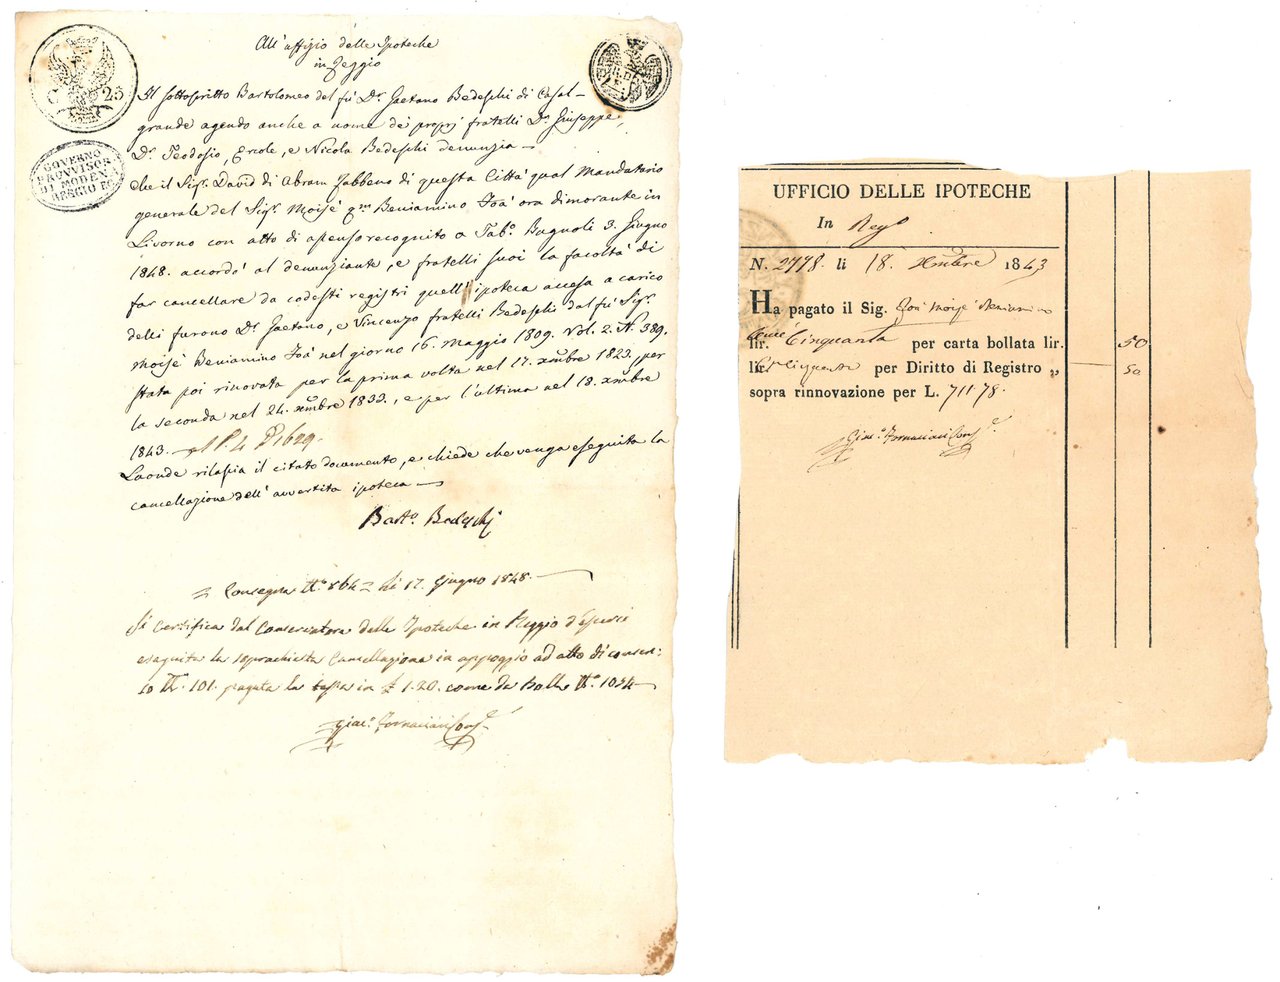 All'uffizio delle Ipoteche
in Reggio
25
GOVERNO
PROVVISOR
DI MODENA
REGGIO EC
Il sottoscritto Bartolomeo del fu Dr. Gaetano Bedeschi di Casal-
grande agendo anche a nome de' proprj fratelli Dr. Giuseppe,
Dr. Teodosio, Ercole, e Nicola Bedeschi denunzia
che il Sigr. David di Abram Jabbeno di questa Città qual Mandatario
generale del Sigr. Moisè qm Beniamino Foà ora dimorante in
Livorno con atto di apenso recognito a Tabo. Bagnoli 3. Giugno
1848. accordò al denunziante, e fratelli suoi la facoltà di
far cancellare da codesti registri quell'ipoteca accesa a carico
delli furono Dr. Gaetano, e Vincenzo fratelli Bedeschi dal fu Sigr.
Moisè Beniamino Foà nel giorno 16. Maggio 1809. Vol. 2. N. 389.
stata poi rinovata per la prima volta nel 17. xmbre 1823., per
la seconda nel 24. xmbre 1833., e per l'ultima nel 18. xmbre
1843.
Laonde rilascia il citato documento, e chiede che venga eseguita la
cancellazione dell'avvertita ipoteca
Barto. Bedeschi
Consegna No. 864 li 17. Giugno 1848.
Si Certifica dal Conservatore delle Ipoteche in Reggio d'essersi
eseguita la soprachiesta Cancellazione in appoggio ad atto di consen:
so No. 101. pagata la tassa in £ 1.20. come da Bolla No. 1054
Giaco. Fornaciari Conse.
UFFICIO DELLE IPOTECHE
In Regg
N. 2778. li 18. Xmbre 1843
Ha pagato il Sig. Foà Moisè Beniamino
lir. Cinquanta per carta bollata lir. 50
lir. Cinquanta per Diritto di Registro „ 50
sopra rinnovazione per L. 711.78.
Giaco. Fornaciari Conse.